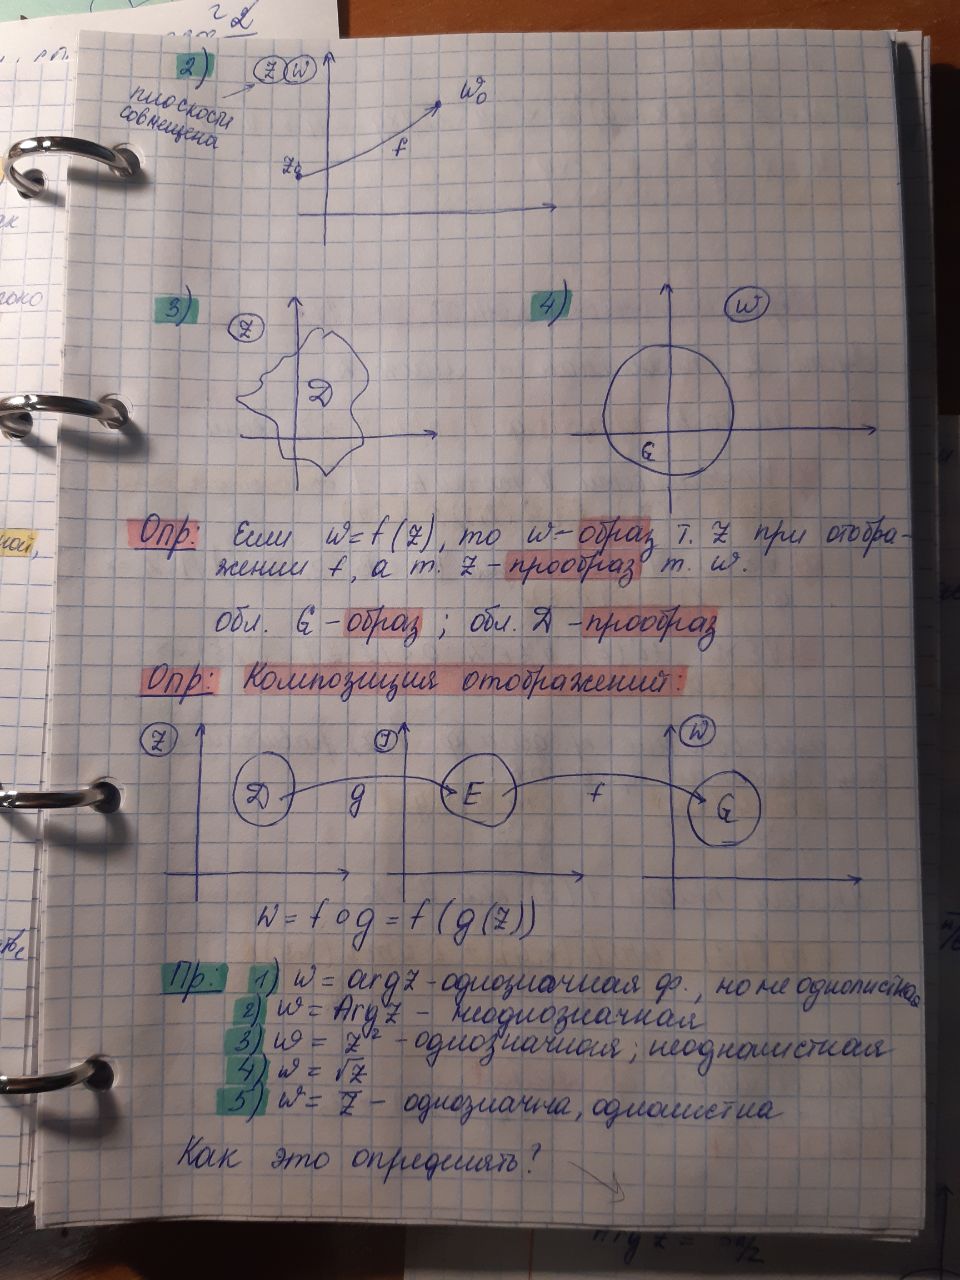 2)
Z W
плоскости
совмещена
W₀
f
Z₀
3)
Z
D
4)
W
G
Опр: Если w=f(z), то w-образ т. z при отобра-
жении f, а т. z - прообраз т. w.
обл. G - образ ; обл. D - прообраз
Опр: Композиция отображений:
Z
W
D
g
E
f
G
W = f o g = f (g(z))
Пр: 1) w = arg z - однозначная ф., но не однолистная
2) w = Arg z - неоднозначная
3) w = z² - однозначная; неоднолистная
4) w = √z
5) w = z̅ - однозначна, однолистна
Как это определять?